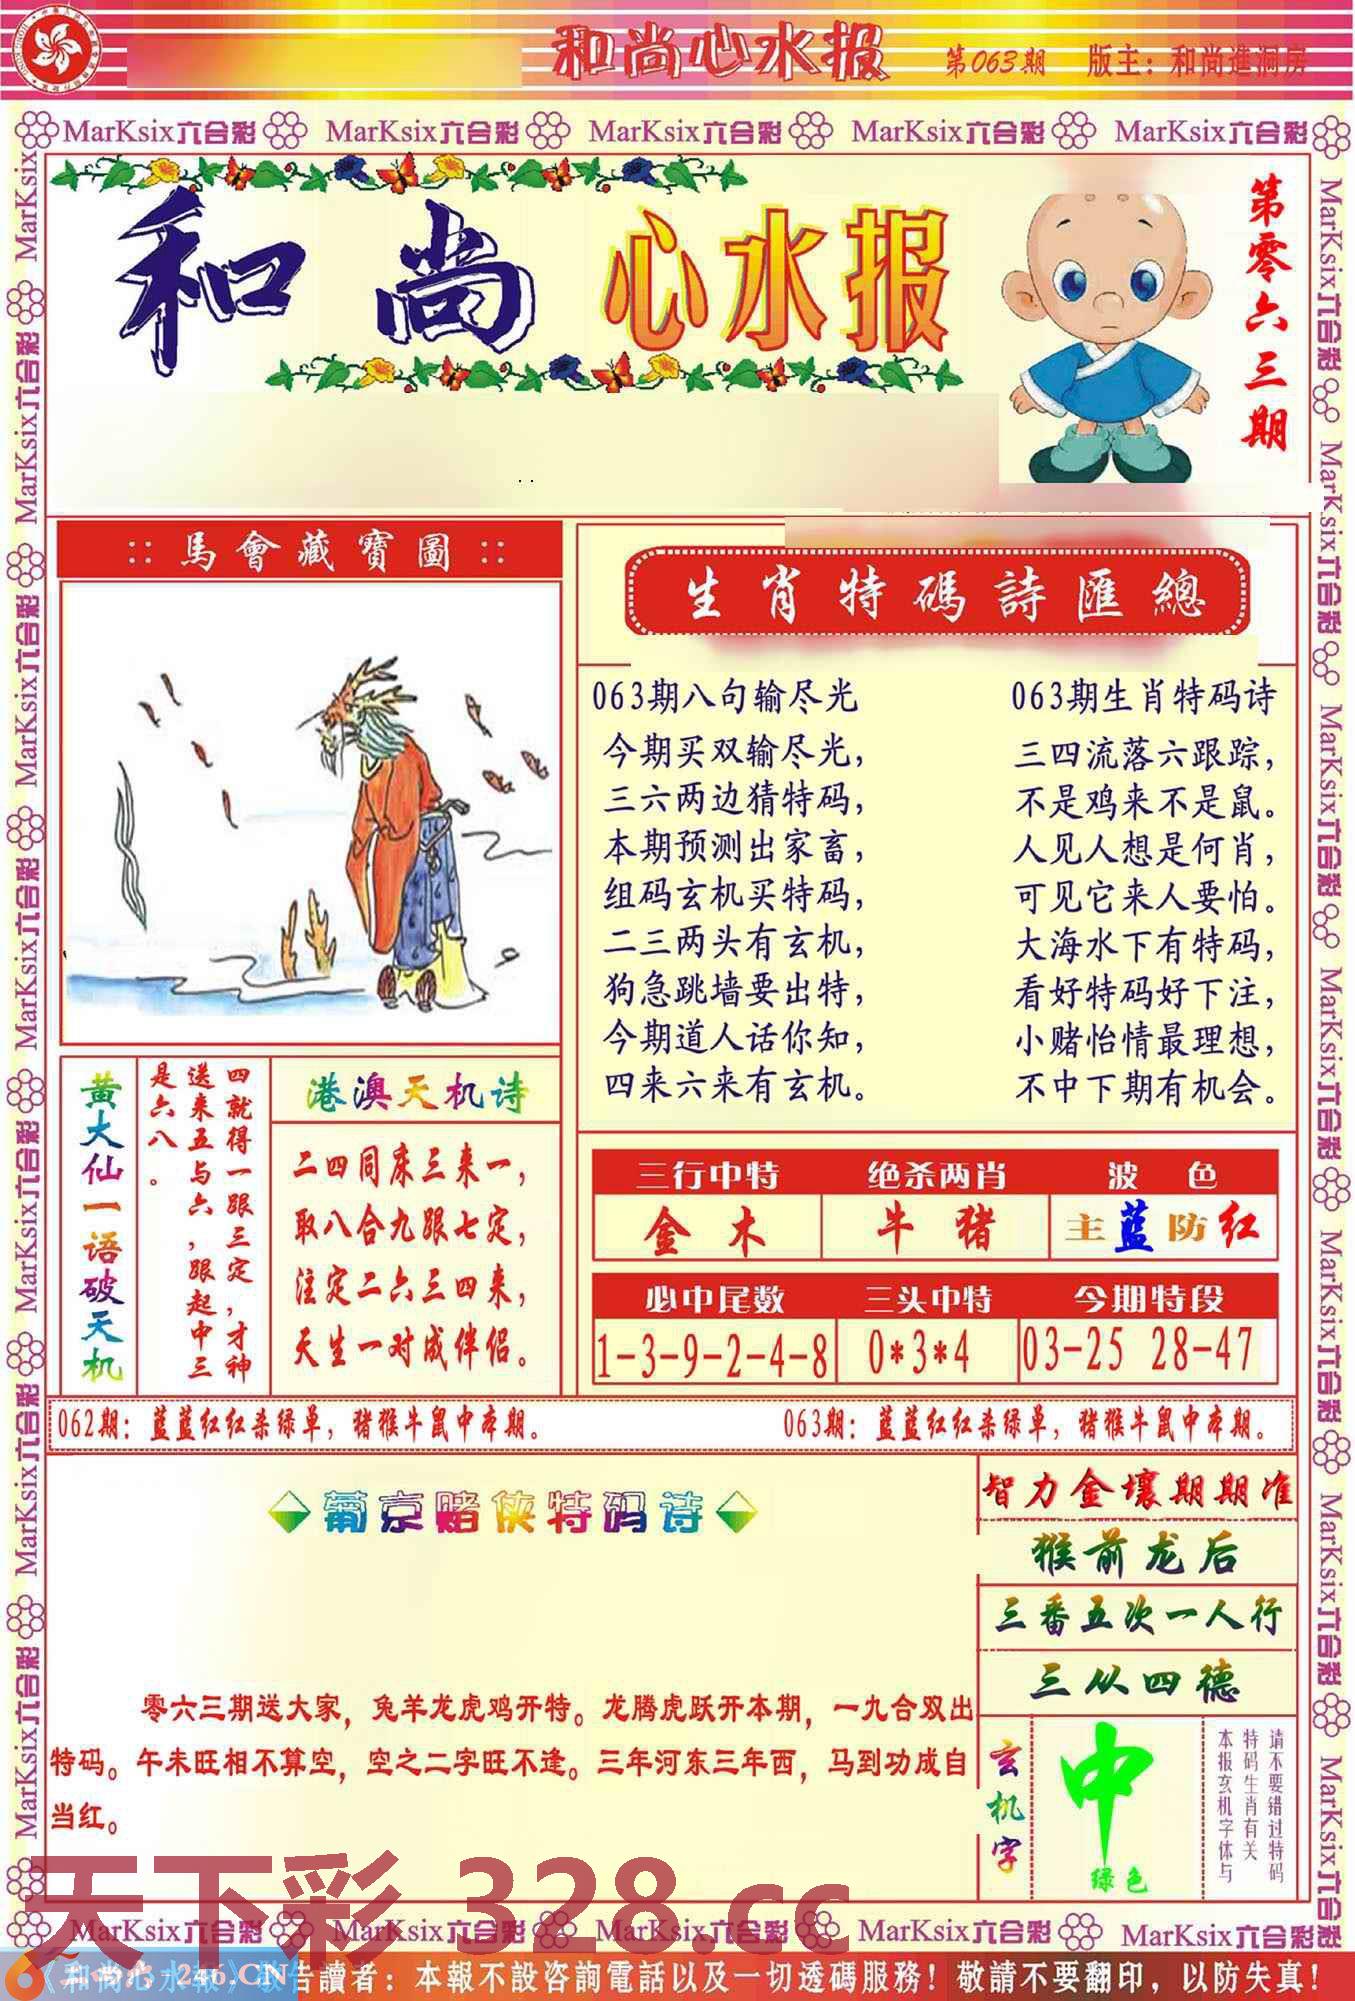 和尚心水报 第063期 版主：和尚進洞房
MarKsix六合彩 MarKsix六合彩 MarKsix六合彩 MarKsix六合彩 MarKsix六合彩
和尚 心水报
第零六三期
:: 馬會藏寶圖 ::
生肖特碼詩匯總
063期八句输尽光
今期买双输尽光，
三六两边猜特码，
本期预测出家畜，
组码玄机买特码，
二三两头有玄机，
狗急跳墙要出特，
今期道人话你知，
四来六来有玄机。
063期生肖特码诗
三四流落六跟踪，
不是鸡来不是鼠。
人见人想是何肖，
可见它来人要怕。
大海水下有特码，
看好特码好下注，
小赌怡情最理想，
不中下期有机会。
黄大仙一语破天机
四就得一跟三定，才神
送来五与六，跟起中三
是六八。
港澳天机诗
二四同床三来一，
取八合九跟七定，
注定二六三四来，
天生一对成伴侣。
三行中特 绝杀两肖 波 色
金 木 牛 猪 主蓝防红
必中尾数 三头中特 今期特段
1-3-9-2-4-8 0*3*4 03-25 28-47
062期：蓝蓝红红杀绿单，猪猴牛鼠中本期。
063期：蓝蓝红红杀绿单，猪猴牛鼠中本期。
葡京赌侠特码诗
零六三期送大家，兔羊龙虎鸡开特。龙腾虎跃开本期，一九合双出
特码。午未旺相不算空，空之二字旺不逢。三年河东三年西，马到功成自
当红。
智力金壤期期准
猴前龙后
三番五次一人行
三从四德
玄机字
中
绿色
请不要错过特码
特码生肖有关
本报玄机字体与
天下彩 328.cc
MarKsix六合彩 MarKsix六合彩 MarKsix六合彩 MarKsix六合彩 MarKsix六合彩
《和尚心水報》敬告讀者：本報不設咨詢電話以及一切透碼服務！敬請不要翻印，以防失真！
246.CN